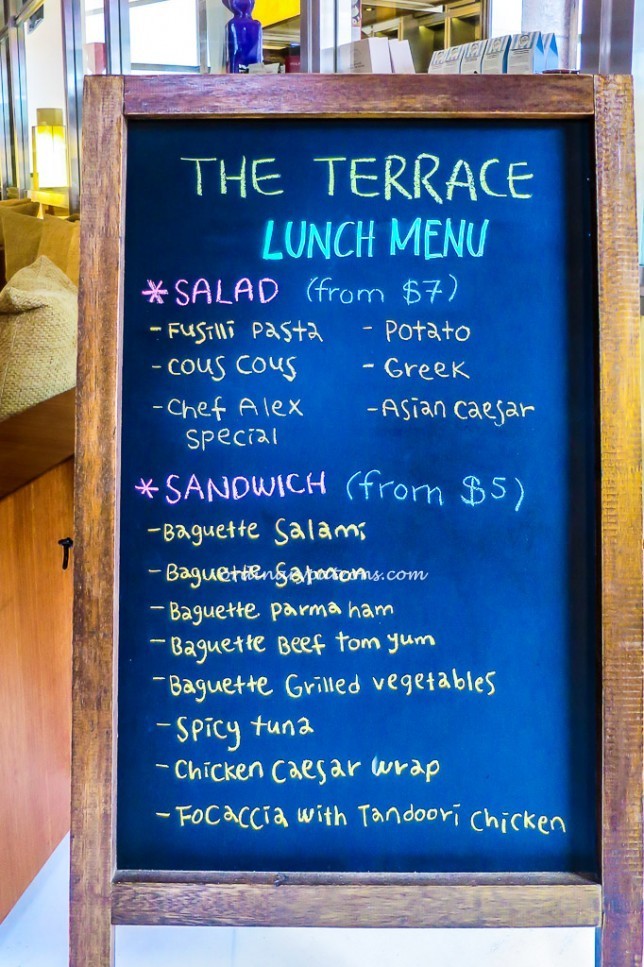 THE TERRACE
LUNCH MENU
*SALAD (from $7)
- Fusilli Pasta - Potato
- Cous Cous - Greek
- Chef Alex - Asian Caesar
Special
*SANDWICH (from $5)
- Baguette Salami
- Baguette Salmon
- Baguette Parma ham
- Baguette Beef Tom yum
- Baguette Grilled vegetables
- Spicy tuna
- Chicken Caesar Wrap
- Focaccia with Tandoori Chicken